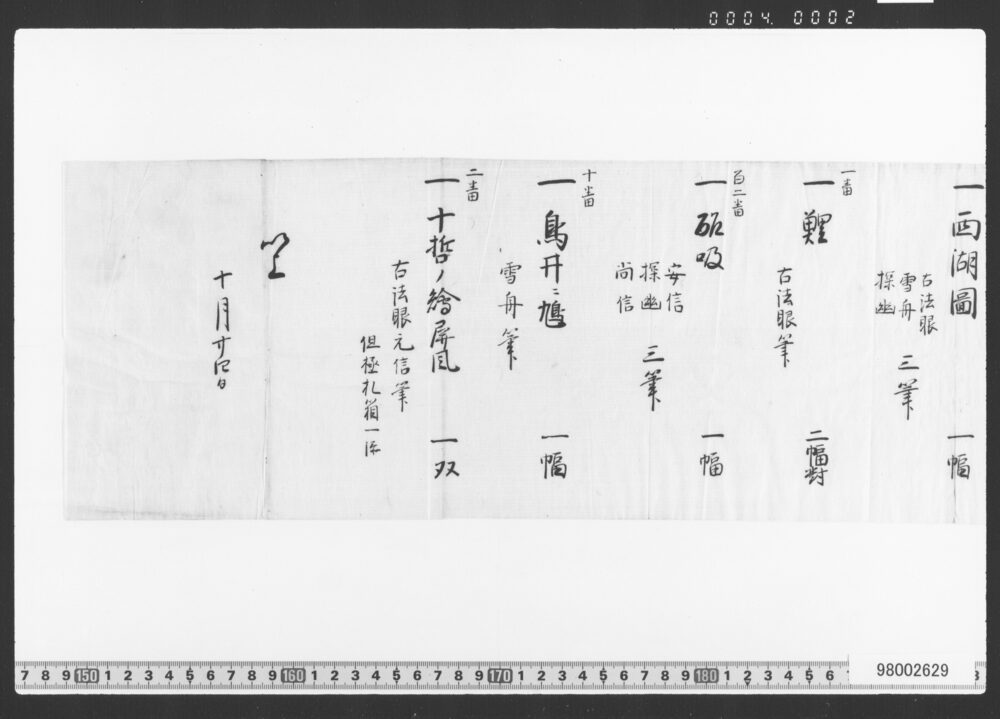 0004.0002
一 西湖圖
古法眼
雪舟
探幽
三筆
一幅
一番
一 鯉
古法眼筆
二幅對
百二番
一 砧吸
安信
探幽
尚信
三筆
一幅
十番
一 鳥井ニ鳩
雪舟筆
一幅
二番
一 十哲ノ繪屏風
古法眼元信筆
但極札箱一添
一双
以上
十月廿四日
7 8 9 150 1 2 3 4 5 6 7 8 9 160 1 2 3 4 5 6 7 8 9 170 1 2 3 4 5 6 7 8 9 180 1 2 3 4 5 6
98002629